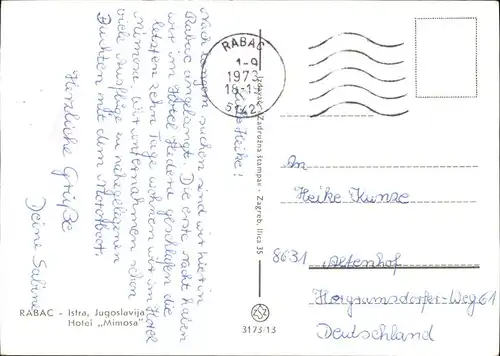 Liebe Heike!
Nach langem suchen sind wir hier in
Rabac angelangt. Die erste Nacht haben
wir im Hotel Hedera geschlafen die
letzten zehn Tage wohnen wir im Hotel
Mimosa. Wir unternahmen schon
viele Ausflüge zu nahegelegenen
Buchten mit dem Motorboot.
Herzliche Grüße
Deine Sabine
RABAC
1-9
1973
18-19
51421
An
Heike Kunze
8631 Altenhof
Horgrumsdorfer-Weg 61
Deutschland
RABAC - Istra, Jugoslavija
Hotel „Mimosa"
Zadružna štampa - Zagreb, Ilica 35
3173/13